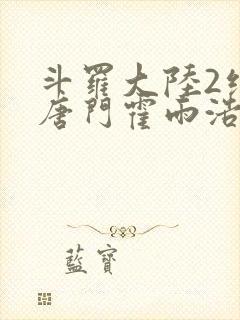 斗羅大陸2
唐門霍雨浩
藍寶